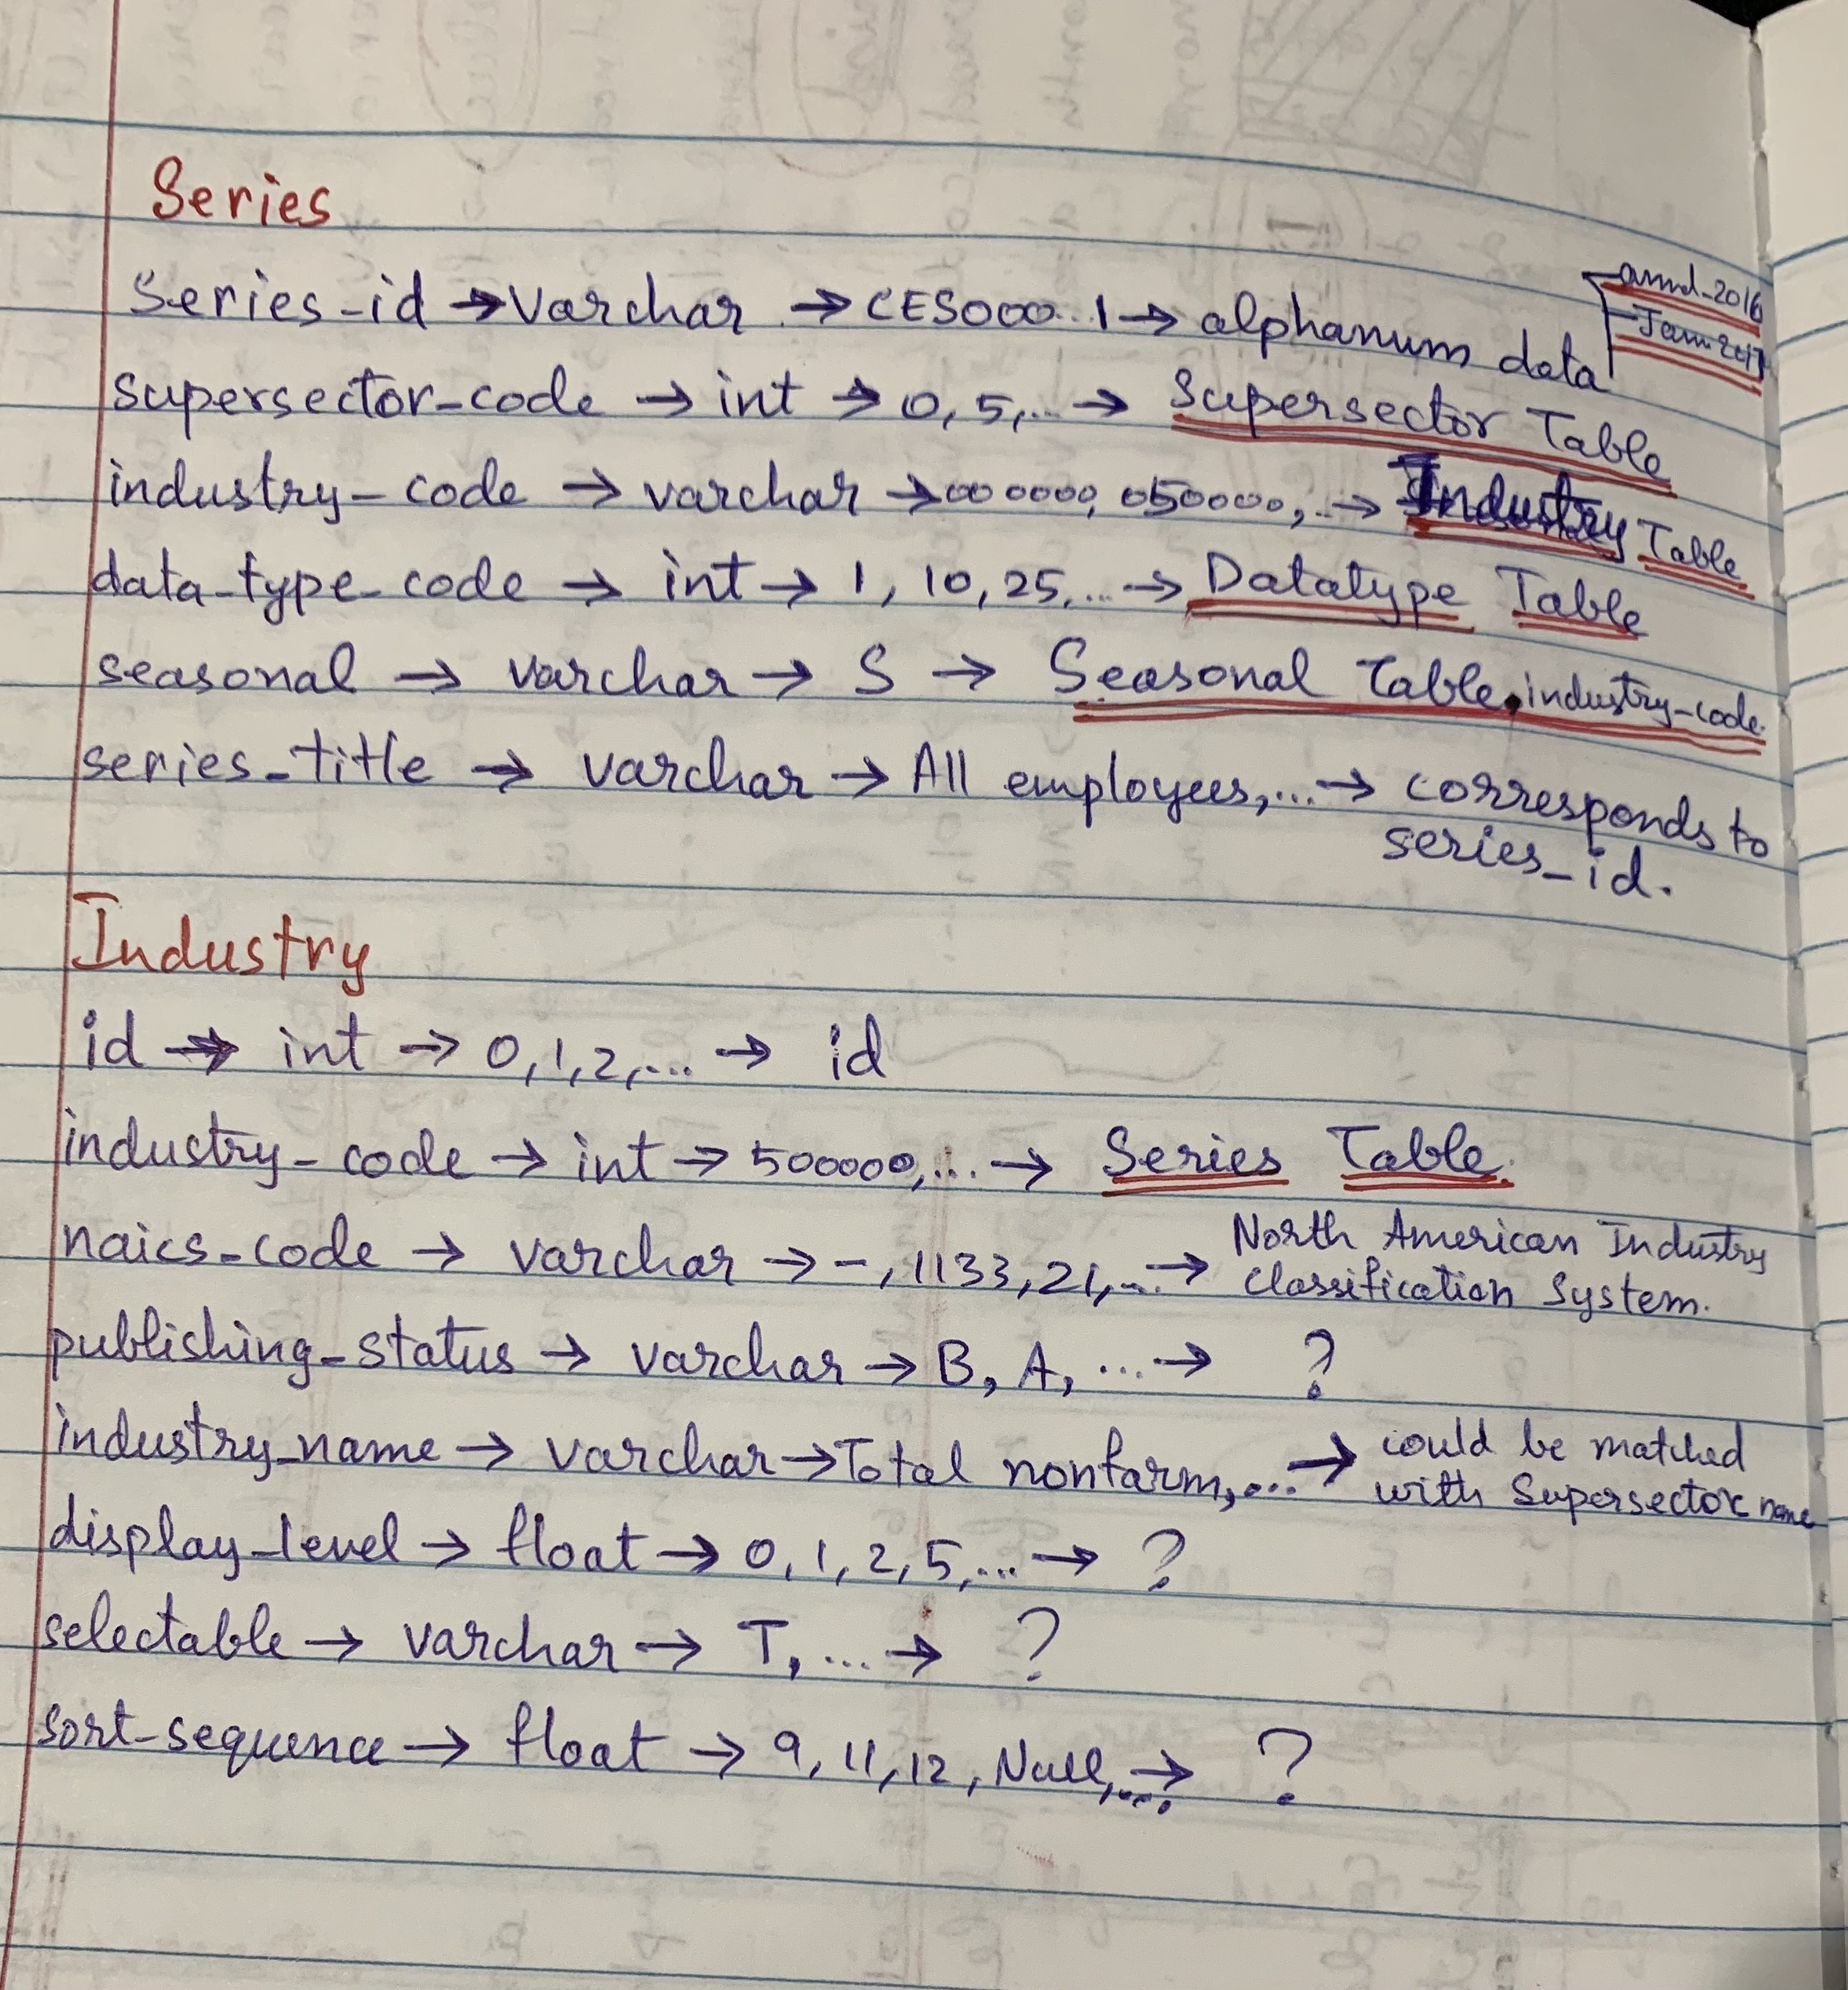 Series
annual-2016
Series_id → Varchar → CES000..1 → alphanum data
Jan-2017
supersector_code → int → 0, 5,... → Supersector Table
industry_code → varchar → 000000, 050000,... → Industry Table
data_type_code → int → 1, 10, 25,... → Datatype Table
seasonal → varchar → S → Seasonal Table.industry_code.
series_title → varchar → All employees,... → corresponds to
series_id.
Industry
id → int → 0,1,2,... → id
industry_code → int → 500000,... → Series Table.
naics_code → varchar → -, 1133, 21,... → North American Industry
Classification System.
publishing_status → varchar → B, A, ... → ?
industry_name → varchar → Total nonfarm,... → could be matched
with Supersector name
display_level → float → 0, 1, 2, 5,... → ?
selectable → varchar → T, ... → ?
sort_sequence → float → 9, 11, 12, Null,... → ?